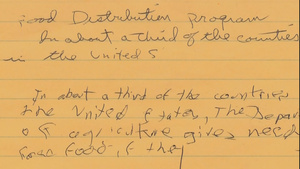 Food Distribution program
In about a third of the counties
in the United S
In about a third of the countries
the United States, The Depar
of agriculture gives need
food, if they